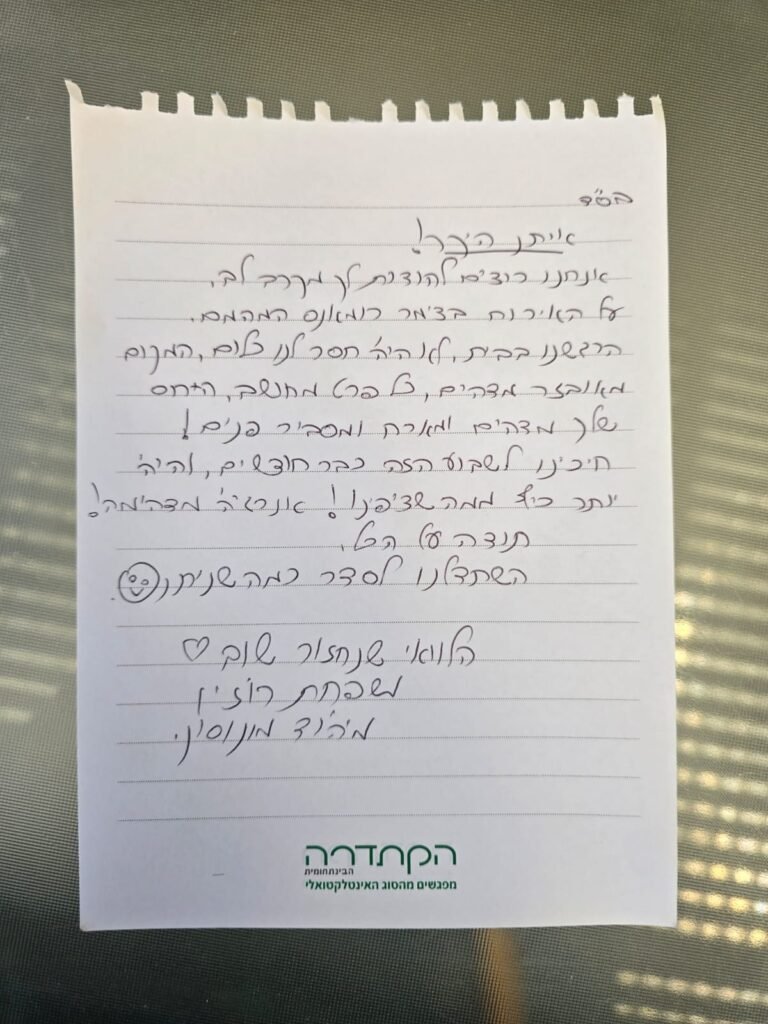 בס"ד
איתן היקר!
אנחנו רוצים להודות לך מקרב לב,
על האירוח בצימר רומאנס המהמם.
הרגשנו בבית, לא היה חסר לנו כלום, המקום
מאובזר מדהים, כל פרט מחושב, היחס
שלך מדהים ומארח ומסביר פנים!
חיכינו לשבוע הזה כבר חודשים, והיה
יותר כיף ממה שציפינו! אנרגיה מדהימה!
תודה על הכל.
השתדלנו לסדר כמה שניתן
הלוואי שנחזור שוב ♡
משפחת רוזין
מיהוד מונוסון.
הקתדרה
הבינתחומית
מפגשים מהסוג האינטלקטואלי